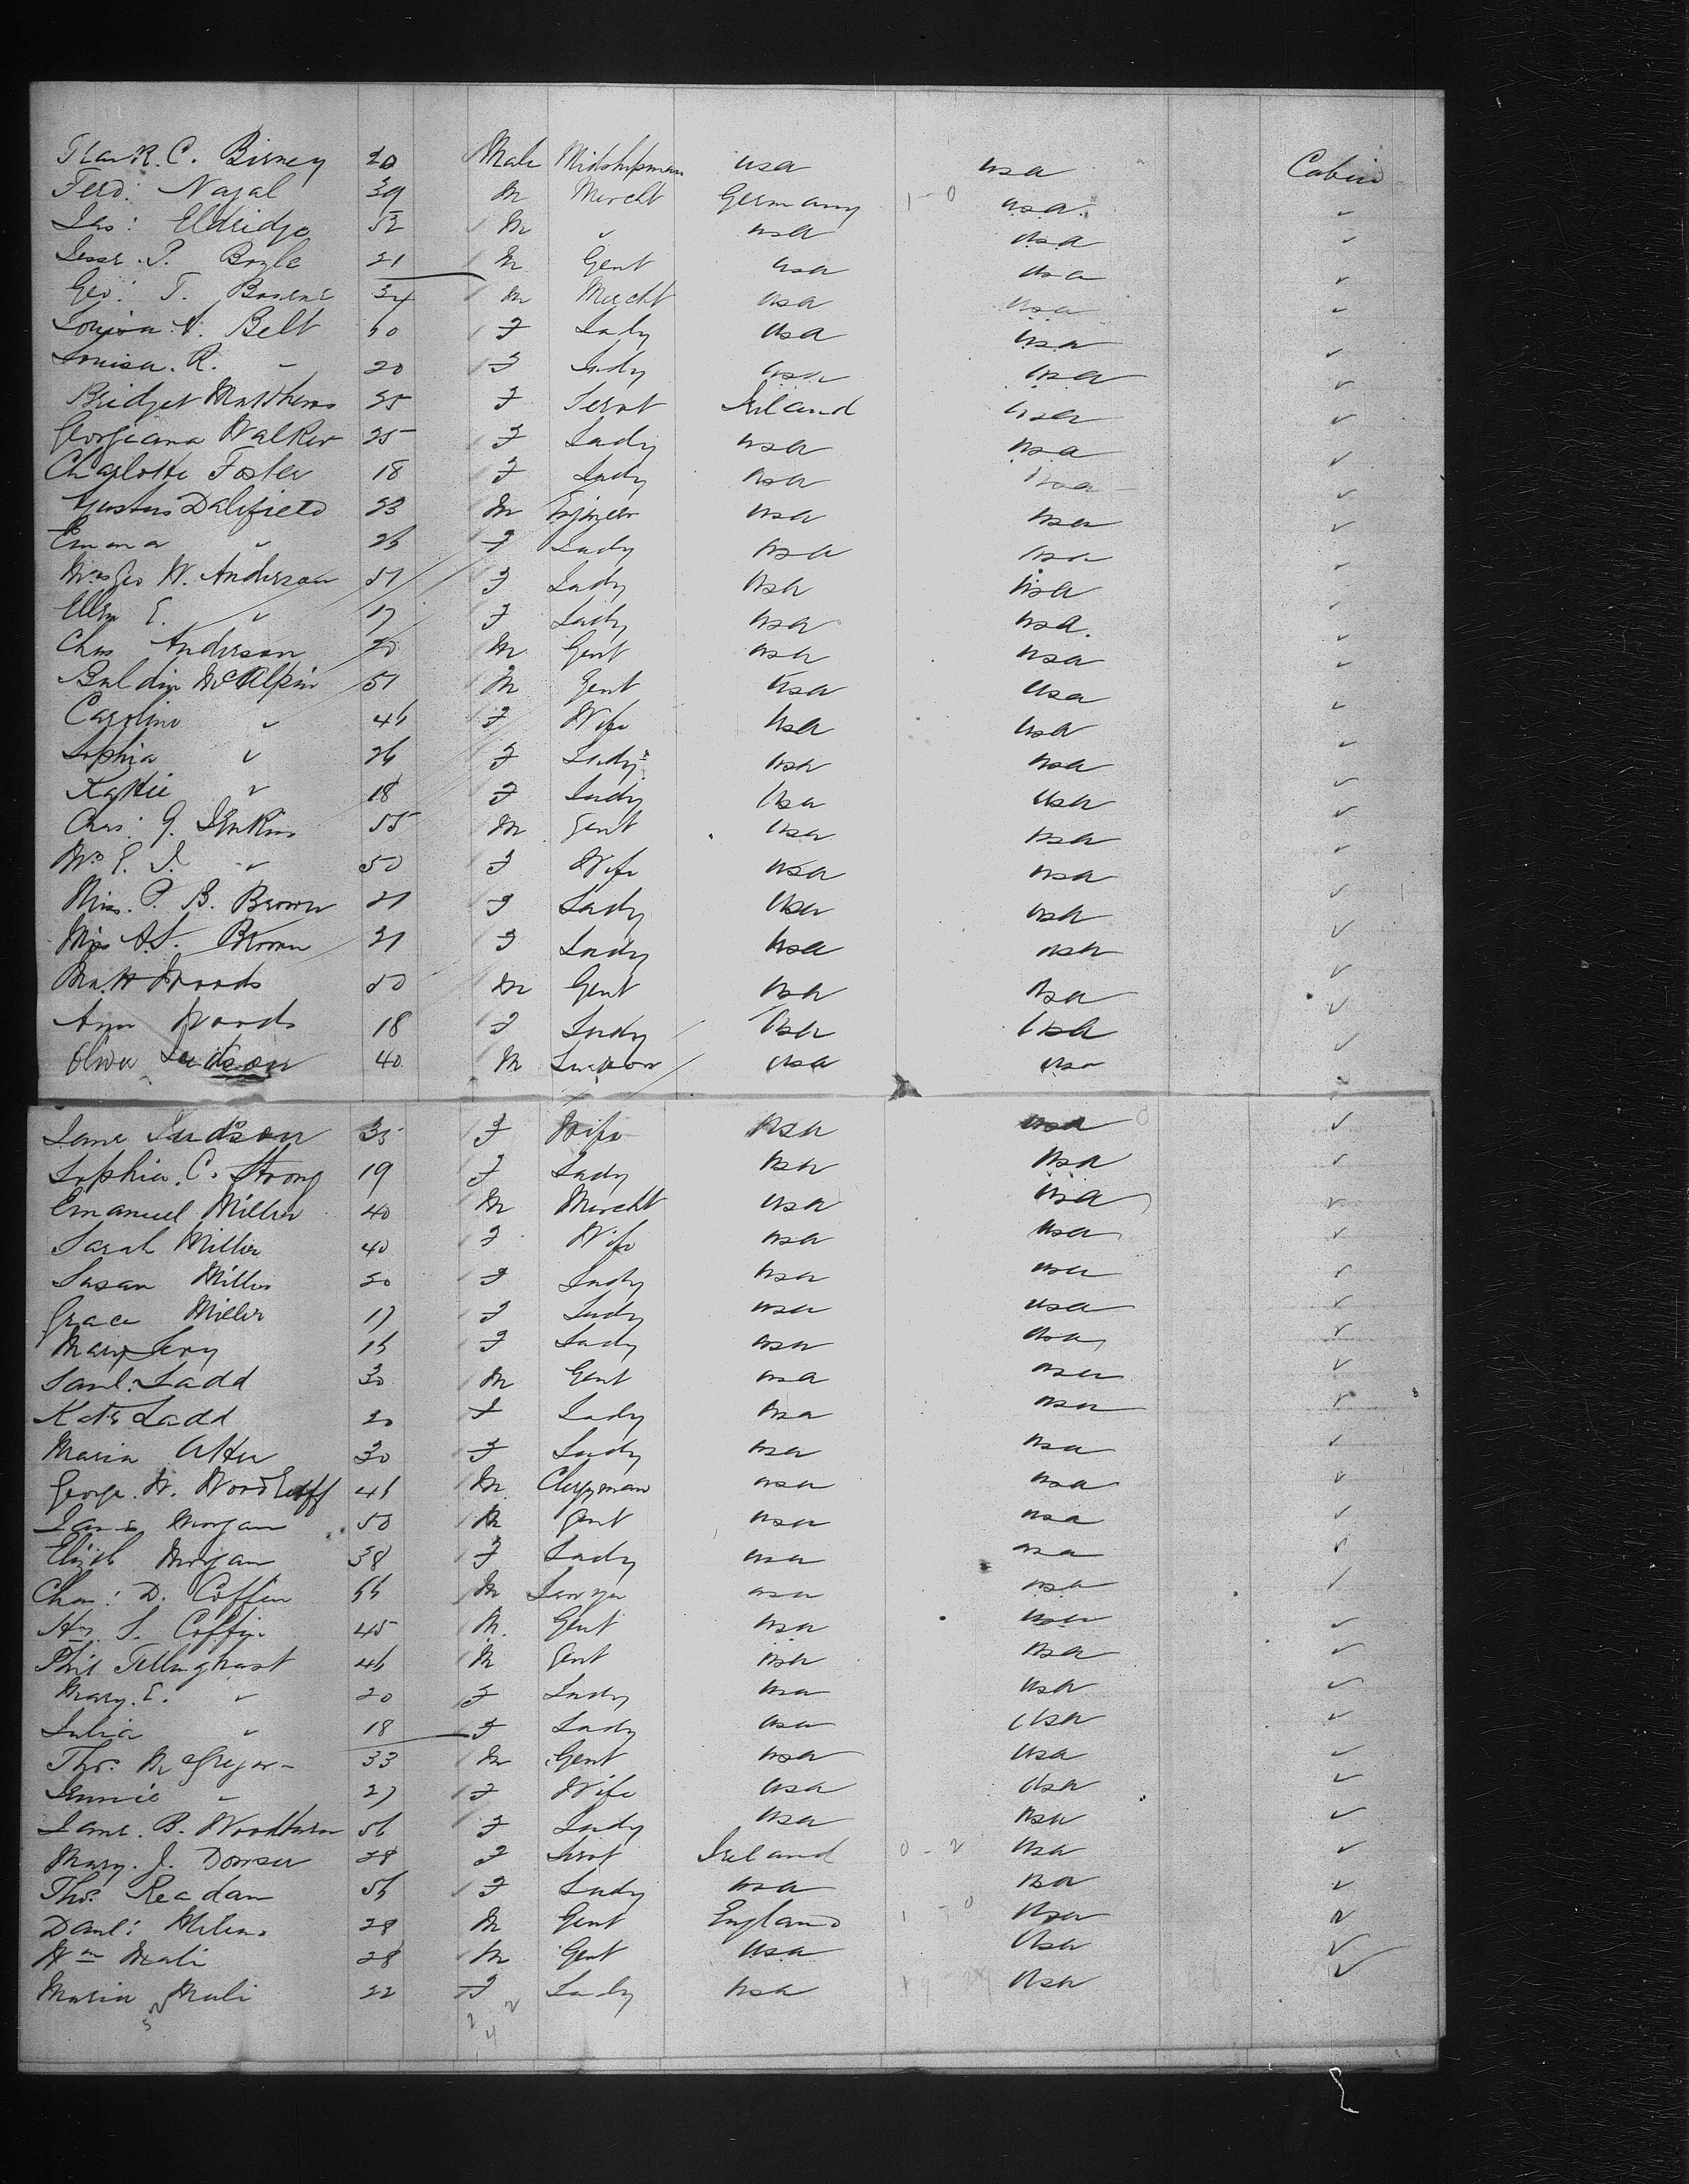 Frank. C. Birney 20 Male Midshipman usa usa Cabin
Ferd: Nazal 39 M Mercht Germany 1-0 usa ✓
Jas: Eldridge 52 M " usa usa ✓
Jesse. P. Bogle 21 M Gent usa usa ✓
Geo: T. 34 M Mercht usa usa ✓
Louisa. A. Belt 50 F Lady usa usa ✓
Louisa. R. " 20 F Lady usa usa ✓
Bridget Matthews 25 F Servt Ireland usa ✓
Georgeana Walker 25 F Lady usa usa ✓
Charlotte Foster 18 F Lady usa usa ✓
Gustus Dalifield 23 M Engineer usa usa ✓
Emma " 26 F Lady usa usa ✓
Mrs Geo W. Anderson 51 F Lady usa usa ✓
Ellen E. " 17 F Lady usa usa. ✓
Chas Anderson 20 M Gent usa usa ✓
Baldin McAlpin 51 M Gent usa usa ✓
Caroline " 46 F Wife usa usa ✓
Sophia " 26 F Lady usa usa ✓
Kattie " 18 F Lady usa usa ✓
Chas: J. Jenkins 55 M Gent usa usa ✓
Mrs E. J. " 50 F Wife usa usa ✓
Miss. P. B. Brown 21 F Lady usa usa ✓
Miss A.S. Brown 31 F Lady usa usa ✓
Mr. H Woods 50 M Gent usa usa ✓
Ann Woods 18 F Lady usa usa ✓
Oliver Judson 40 M usa usa ✓
Jane Judson 35 F Wife usa usa ✓
Sophia. C. Strong 19 F Lady usa usa ✓
Emanuel Miller 40 M Mercht usa usa ✓
Sarah Miller 40 F Wife usa usa ✓
Susan Miller 20 F Lady usa usa ✓
Grace Miller 17 F Lady usa usa ✓
Mary 16 F Lady usa usa ✓
Saml. Ladd 30 M Gent usa usa ✓
Kate Ladd 20 F Lady usa usa ✓
Maria 30 F Lady usa usa ✓
George. W. Woodruff 46 M Clergyman usa usa ✓
James Morgan 50 M Gent usa usa ✓
Elizth Morgan 38 F Lady usa usa ✓
Chas: D. Coffin 66 M Lawyer usa usa ✓
Hy. S. Coffin 45 M. Gent usa usa ✓
Phil Tillinghast 46 M Gent usa usa ✓
Mary. E. " 20 F Lady usa usa ✓
Julia " 18 F Lady usa usa ✓
Thos. McGregor 33 M Gent usa usa ✓
Jennie " 27 F Wife usa usa ✓
Jane. B. Woodburn 56 F Lady usa usa ✓
Mary. J. Dowser 28 F Servt Ireland 0-2 usa ✓
Thos. Readan 56 F Lady usa usa ✓
Danl: 28 M Gent England 1-0 usa ✓
Wm Mali 28 M Gent usa usa ✓
Maria Mali 22 F Lady usa usa ✓